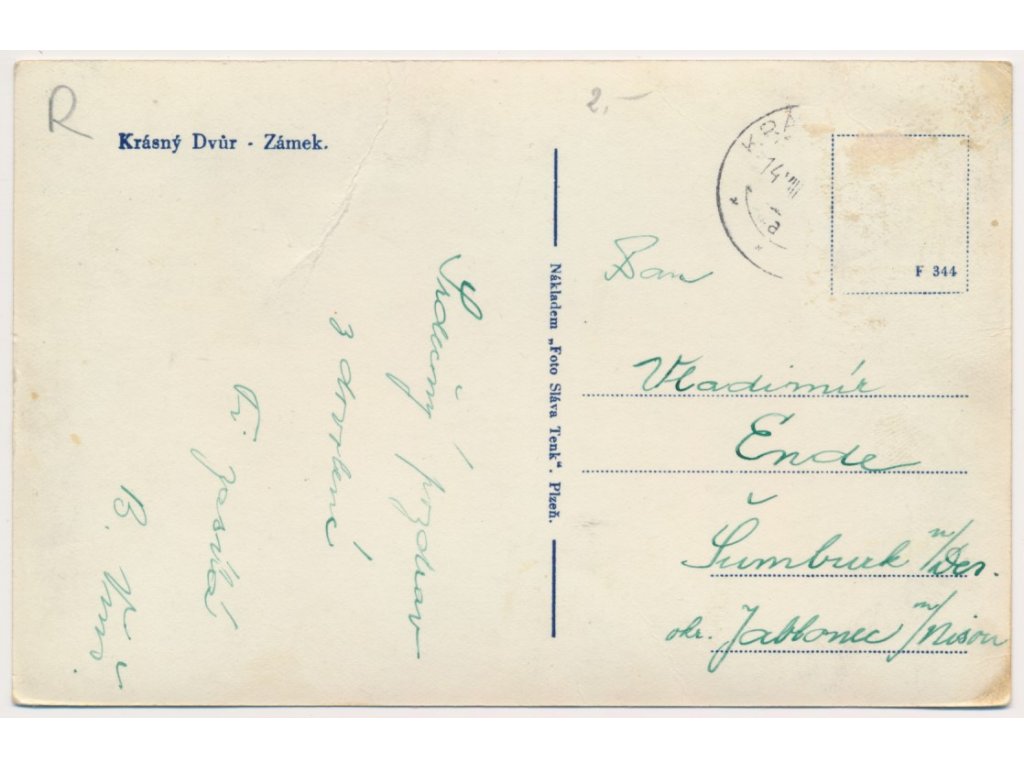 R
2,-
Krásný Dvůr - Zámek.
KRÁ
14 VIII
a
F 344
Srdečný pozdrav
z dovolené
Ti posílá
B.
Nákladem „Foto Sláva Tenk“. Plzeň.
Pan
Vladimír
Ende
Šumburk n/Des.
okr. Jablonec n/Nisou